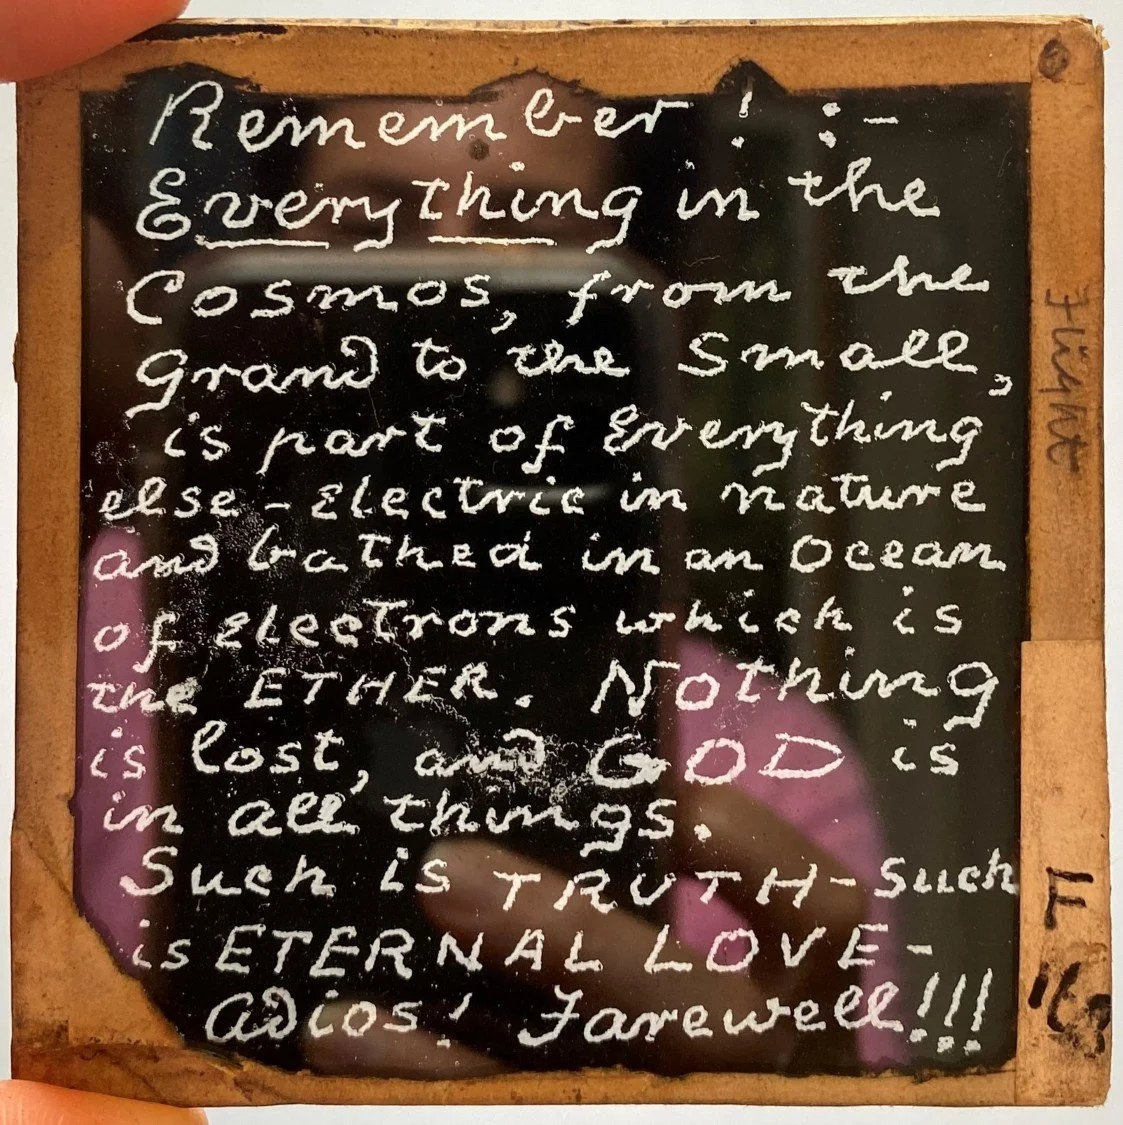 Remember ! :-
Everything in the
Cosmos, from the
Grand to the Small,
is part of Everything
else - Electric in nature
and bathed in an Ocean
of electrons which is
the ETHER. Nothing
is lost, and GOD is
in all things.
Such is TRUTH - Such
is ETERNAL LOVE -
Adios! Farewell!!!
Flight
F